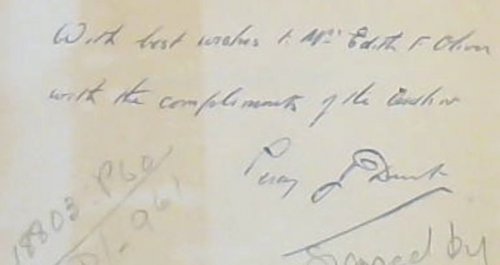 With best wishes to Mrs Edith F Oliver
with the compliments of the author
Percy J
18803. P60
signed by